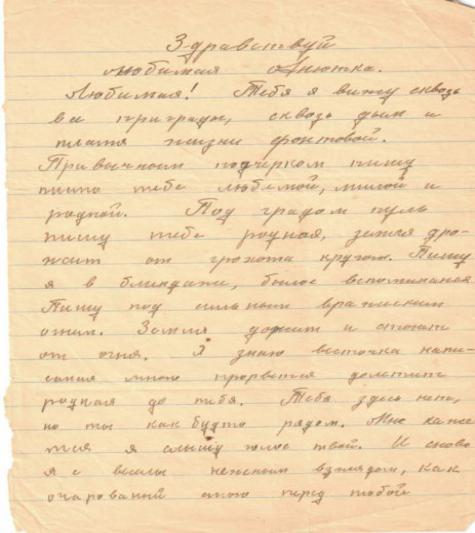 Здравствуй
любимая Анютка.
Любимая! Тебя я вижу сквозь
все приграды, сквозь дым и
пламя жизни фронтовой.
Привычным подчерком пишу
письмо тебе любимой, милой и
родной. Под градом пуль
пишу тебе родная, земля дро-
жит от грохота кругом. Пишу
я в блиндаже, былое вспоминая
Пишу под сильным вражеским
огнем. Земля дрожит и стонет
от огня. Я знаю весточка напи-
саная мною прорвется долетит
родная до тебя. Тебя здесь нет,
но ты как будто рядом. Мне каже
тся я слышу голос твой. И снова
я с нежным взглядом, как
очарований стою перед тобой